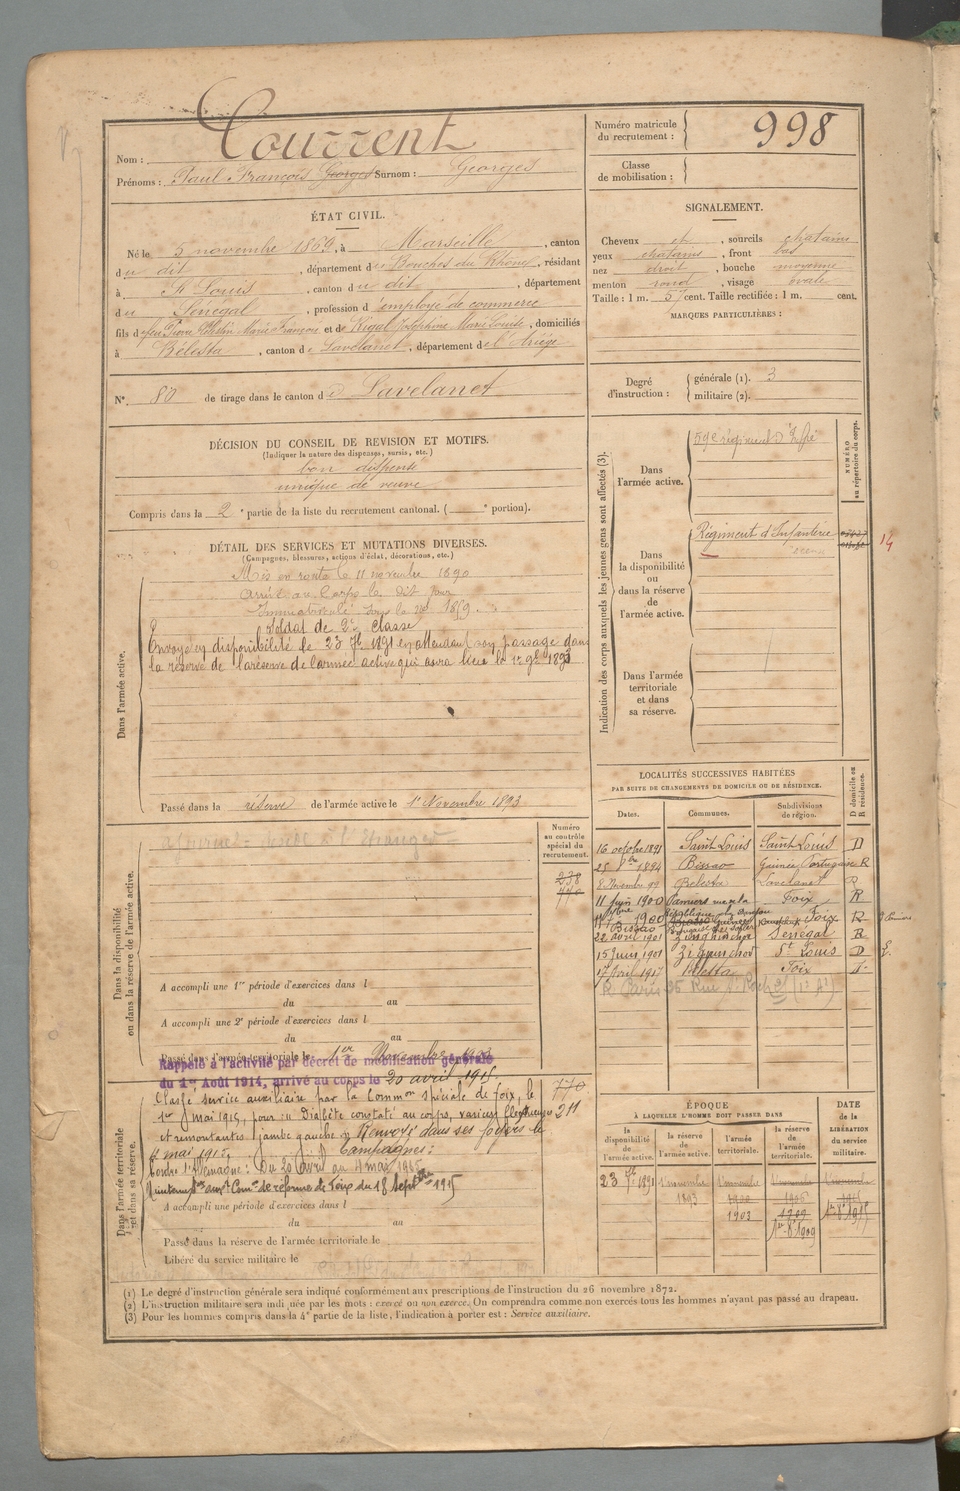 Nom : Courrent
Prénoms : Paul François Georges Surnom : Georges
Numéro matricule du recrutement : 998
Classe de mobilisation :
ÉTAT CIVIL.
Né le 5 novembre 1869, à Marseille, canton
du dit, département des Bouches du Rhône, résidant
à St Louis, canton du dit, département
du Sénégal, profession d'employé de commerce
fils de feu Pierre Célestin Marie François et de Rigal Joséphine Marie Louise, domiciliés
à Bélesta, canton de Lavelanet, département de l'Ariège
N° 80 de tirage dans le canton de Lavelanet
SIGNALEMENT.
Cheveux et, sourcils chatains
yeux chatains, front bas
nez droit, bouche moyenne
menton rond, visage ovale
Taille : 1 m. cent. Taille rectifiée : 1 m. cent.
MARQUES PARTICULIÈRES :
Degré d'instruction : générale (1). 3
militaire (2).
DÉCISION DU CONSEIL DE REVISION ET MOTIFS.
(Indiquer la nature des dispenses, sursis, etc.)
bon dispensé
unique de veuve
Compris dans la 2e partie de la liste du recrutement cantonal. ( e portion).
DÉTAIL DES SERVICES ET MUTATIONS DIVERSES.
(Campagnes, blessures, actions d'éclat, décorations, etc.)
Dans l'armée active.
Mis en route le 11 novembre 1890
Arrivé au Corps le dit jour
Immatriculé sous le no
Soldat de 2e classe
Envoyé en disponibilité le 23 7bre 1891 en attendant son passage dans
la réserve de l'armée active qui aura lieu le 1er 9bre 1893
Passé dans la réserve de l'armée active le 1er Novembre 1893
Indication des corps auxquels les jeunes gens sont affectés (3).
Dans l'armée active.
59e régiment d'Infie
NUMÉRO au répertoire du corps.
Dans la disponibilité ou dans la réserve de l'armée active.
Régiment d'Infanterie
14
Dans l'armée territoriale et dans sa réserve.
LOCALITÉS SUCCESSIVES HABITÉES
PAR SUITE DE CHANGEMENTS DE DOMICILE OU DE RÉSIDENCE.
Dates. Communes. Subdivisions de région. D domicile ou R résidence.
16 octobre 1891 Saint Louis Saint Louis D
25 8bre 1894 Bissao Guinée Portugaise R
8 Novembre 99 Bélesta Lavelanet R
11 Juin 1900 Pamiers Foix R
1900 Foix R
22 avril 1901 Zinghinchor Sénégal R
15 Juin 1901 Ziguinchor St Louis D
17 Avril 1917 Foix
R Paris Rue St Roch
Dans la disponibilité ou dans la réserve de l'armée active.
Numéro au contrôle spécial du recrutement.
238
770
A accompli une 1re période d'exercices dans l
du au
A accompli une 2e période d'exercices dans l
du au
Passé dans l'armée territoriale le 1er Novembre 1903
Rappelé à l'activité par décret de mobilisation générale
du 1er Août 1914, arrivé au corps le 20 avril 1915.
Dans l'armée territoriale et dans sa réserve.
770
211
Classé service auxiliaire par la Common spéciale de Foix, le
1er mai 1915, pour Diabète constaté au corps, varices
et remontantes jambe gauche Renvoyé dans ses foyers le
4 mai 1915.
Campagnes :
Contre l'Allemagne : Du 20 avril au 4 mai 1915
Maintenu Com. de réforme de Foix du 18 Septbre 1915
A accompli une période d'exercices dans l
du au
Passé dans la réserve de l'armée territoriale le
Libéré du service militaire le
ÉPOQUE
À LAQUELLE L'HOMME DOIT PASSER DANS
la disponibilité de l'armée active. la réserve de l'armée active. l'armée territoriale. la réserve de l'armée territoriale.
DATE de la LIBÉRATION du service militaire.
23 7bre 1891 1 novembre 1893 1 novembre 1900 1 novembre 1906 1 novembre 1915
1903 1909
1er 8bre 1909
(1) Le degré d'instruction générale sera indiqué conformément aux prescriptions de l'instruction du 26 novembre 1872.
(2) L'instruction militaire sera indiquée par les mots : exercé ou non exercé. On comprendra comme non exercés tous les hommes n'ayant pas passé au drapeau.
(3) Pour les hommes compris dans la 4e partie de la liste, l'indication à porter est : Service auxiliaire.